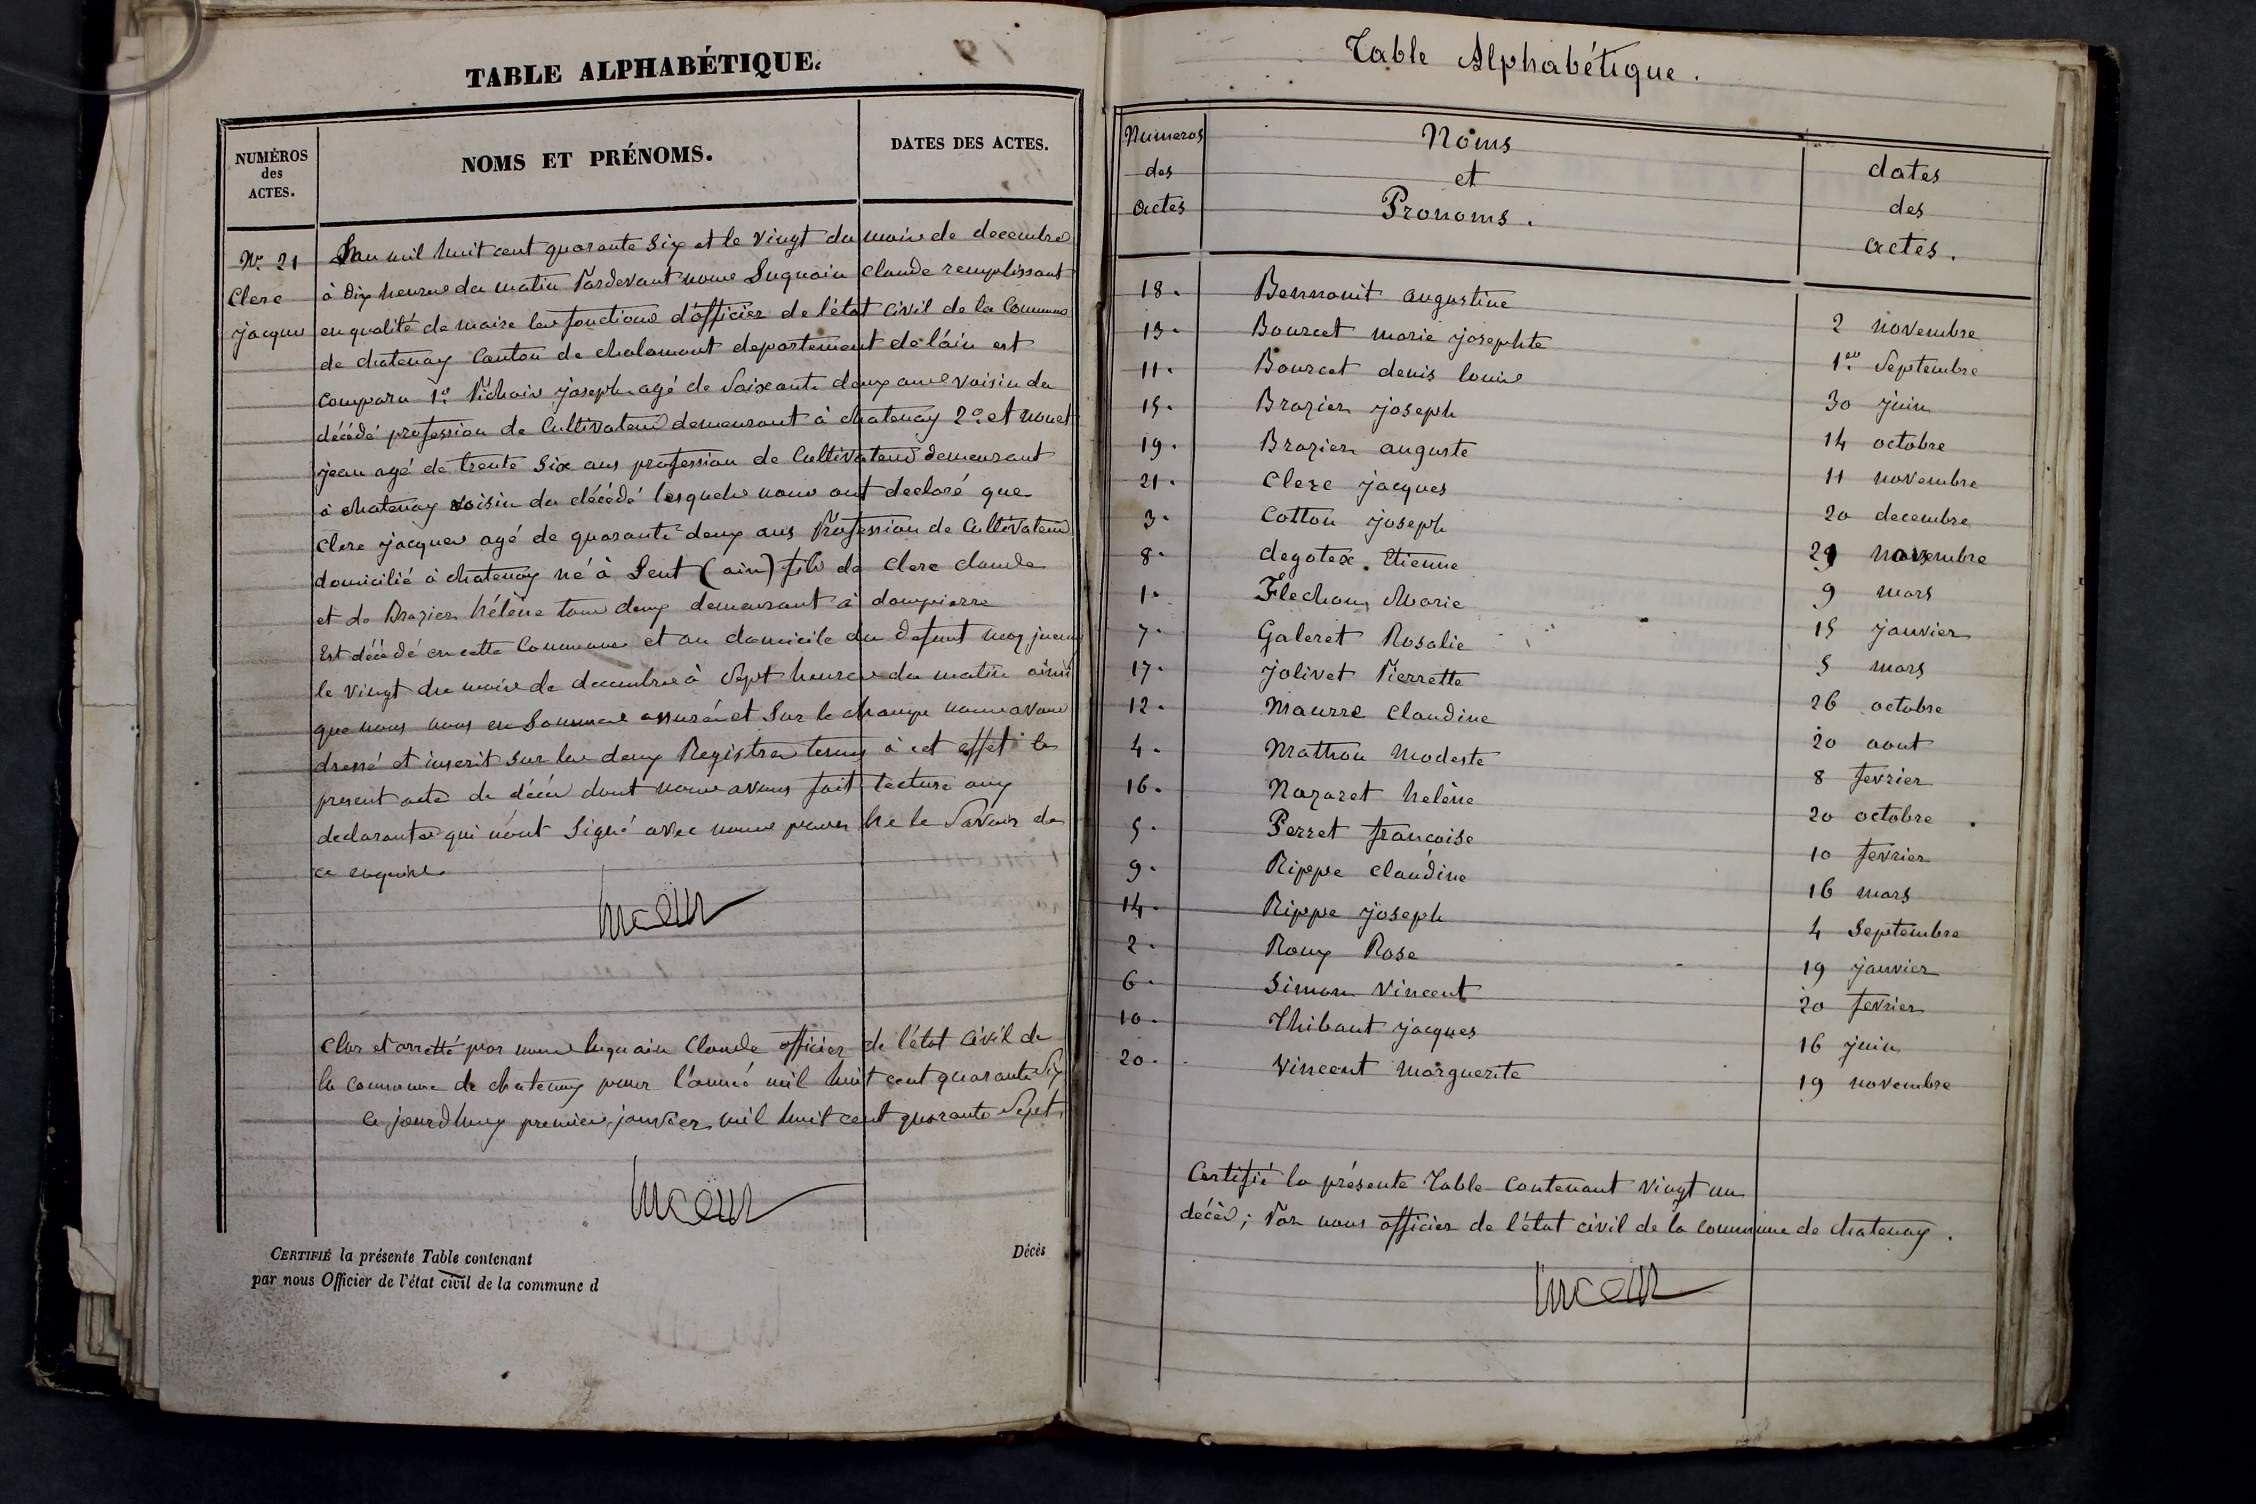 TABLE ALPHABÉTIQUE.
NUMÉROS
des
ACTES.
NOMS ET PRÉNOMS.
DATES DES ACTES.
N° 21
Clerc
jacques
L'an mil huit cent quarante Six et le vingt du mois de decembre
à dix heures du matin Pardevant nous Luquain Claude remplissant
en qualité de maire les fonctions d'officier de l'état Civil de la Commune
de chatenay Canton de chalamont departement de l'ain est
comparu 1° joseph agé de Soixante deux ans voisin du
décédé profession de Cultivateur demeurant à chatenay 2° et
jean agé de trente Six ans profession de Cultivateur demeurant
à chatenay voisin du décédé lesquels nous ont declaré que
Clerc jacques agé de quarante deux ans Profession de Cultivateur
domicilié à chatenay né à Lent (ain) fils de Clerc claude
et de Brazier hélène tous deux demeurant à dompierre
Est décédé en cette Commune et au domicile du defunt
le vingt du mois de decembre à Sept heures du matin ainsi
que nous nous en Sommes assuré et Sur le champs nous avons
dressé et inscrit Sur les deux Registres tenus à cet effet le
present acte de décès dont nous avons fait lecture aux
declarants qui n'ont Signé avec nous pour ne le Savoir de
ce enquire.
Clos et arretté par nous luquain Claude officier de l'état Civil de
la commune de chatenay pour l'année mil huit cent quarante Six
ce jourdhuy premier janvier mil huit cent quarante Sept.
CERTIFIÉ la présente Table contenant Décès
par nous Officier de l'état civil de la commune d
Table Alphabétique.
Numeros
des
actes
Noms
et
Pronoms.
dates
des
actes.
18. Bennonit augustine 2 novembre
13. Bourcet marie josephte 1er Septembre
11. Bourcet denis louis 30 juin
15. Brazier joseph 14 octobre
19. Brazier auguste 11 novembre
21. Clerc jacques 20 decembre
3. Cotton joseph
8. degotex Etienne 9 mars
1. Flechon Marie 15 janvier
7. Galeret Rosalie 5 mars
17. jolivet Pierrette 26 octobre
12. Maurre Claudine 20 aout
4. Mathon Modeste 8 fevrier
16. Nazaret helène 20 octobre.
5. Perret francoise 10 fevrier
9. Rippe claudine 16 mars
14. Rippe joseph 4 Septembre
2. Roux Rose 19 janvier
6. Simon Vincent 20 fevrier
10. Thibaut jacques 16 juin
20. Vincent marguerite 19 novembre
Certifié la présente Table contenant Vingt un
décès; Par nous officier de l'état civil de la commune de chatenay.